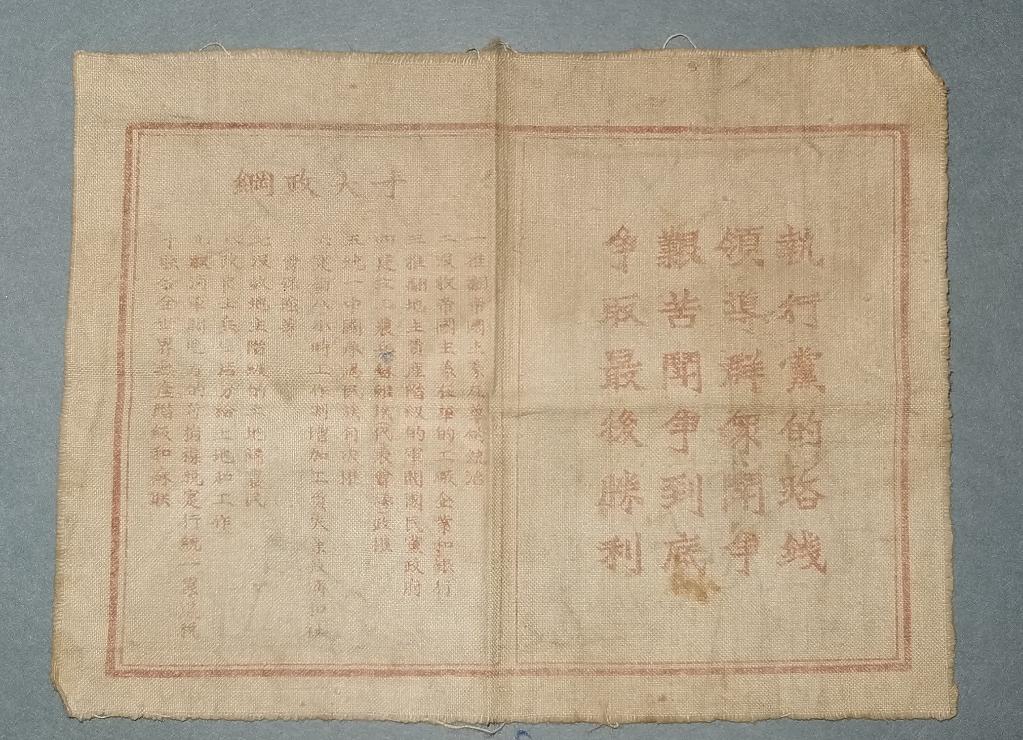 執行黨的路錢
領導群眾鬪爭
艱苦鬪爭到底
爭取最後勝利
十大政綱
一推翻帝國主義在華的統治
二沒收帝國主義在華的工廠企業和銀行
三推翻地主資產階級的軍閥國民黨政府
四建立工農兵蘇維埃代表會議政權
五統一中國承認民族自決權
六實行八小時工作制增加工資失業救濟和社
會保險等
七沒收地主階級的土地歸農民
八改良士兵生活分給土地和工作
取消軍閥地方的苛捐雜稅定行統一累進稅
十聯合全世界無產階級和蘇联